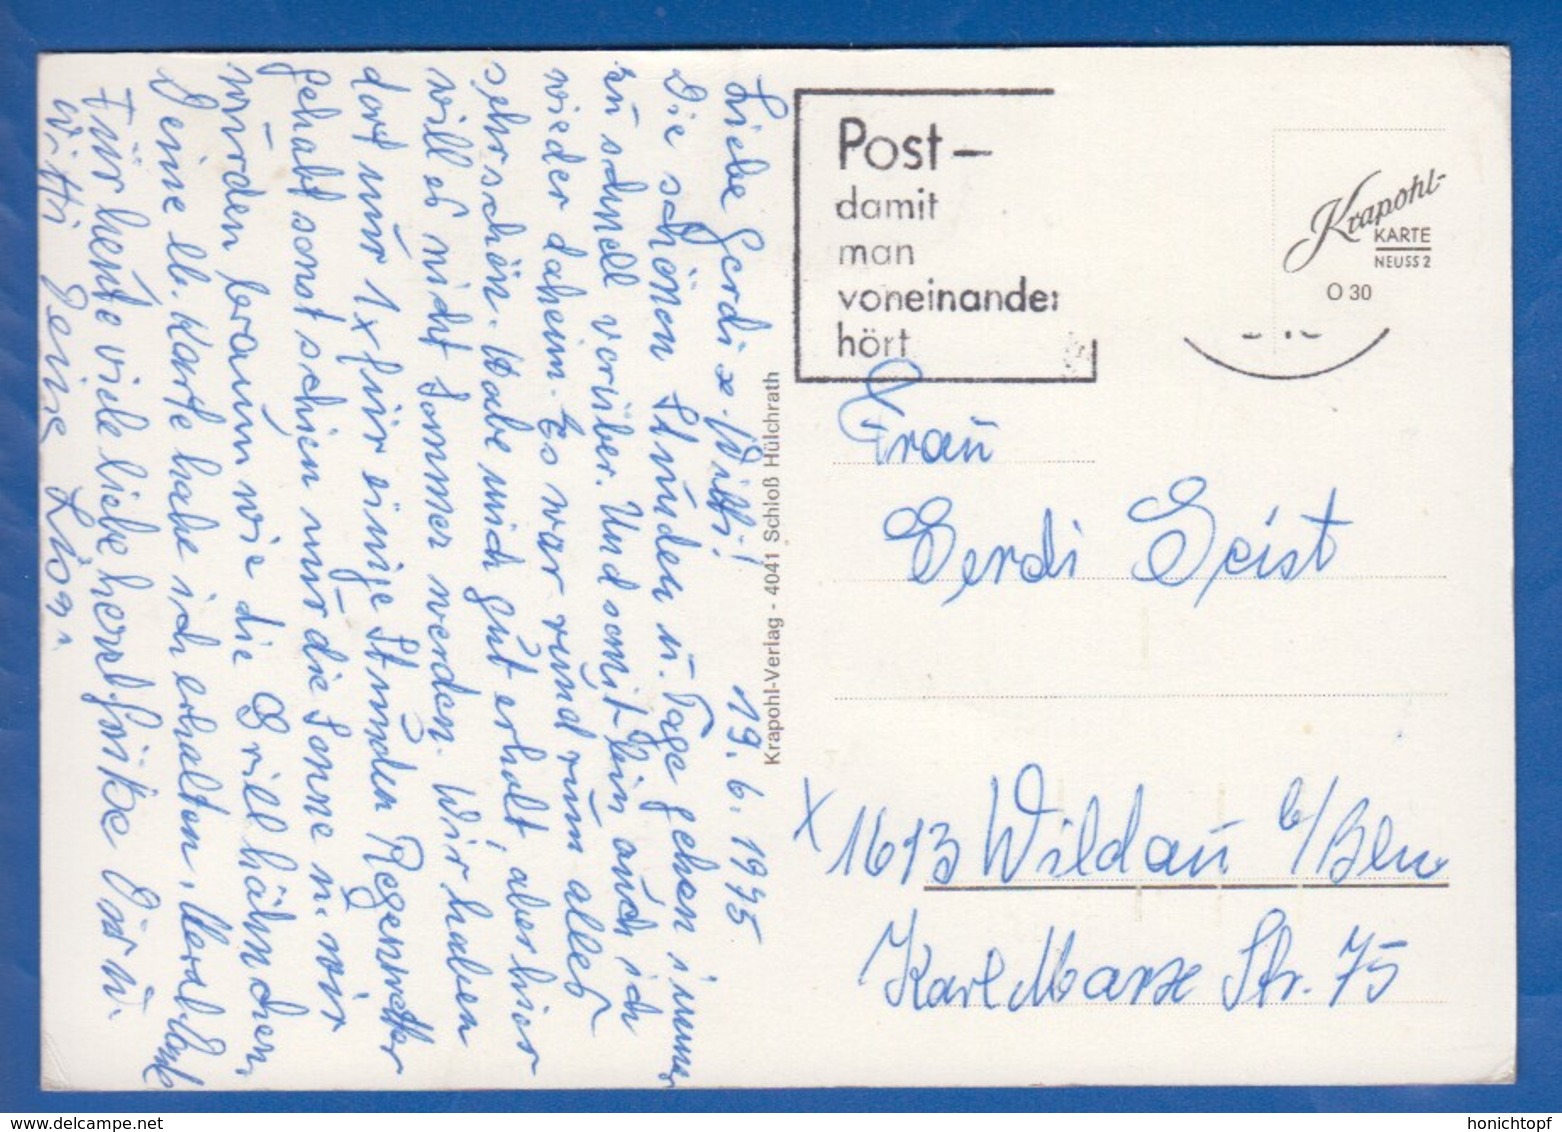 Liebe Gerdi u. Willi! 19.6.1975
Die schönen Stunden u. Tage gehen immer
zu schnell vorüber. Und somit bin auch ich
wieder daheim. Es war rundrum alles
sehr schön. Habe mich gut erholt, aber hier
will es nicht Sommer werden. Wir haben
dort nur 1x für einige Stunden Regenwetter
gehabt sonst schien nur die Sonne u. wir
wurden braun wie die Brillhähnchen.
Deine lb. Karte habe ich erhalten. Herzl. Dank
Für heute viele liebe herzl. Grüße Dir u.
Willi Deine
Krapohl-Verlag - 4041 Schloß Hülchrath
Post –
damit
man
voneinander
hört
Krapohl-
KARTE
NEUSS 2
O 30
Frau
Gerdi Geist
x 1613 Wildau b/Bln
Karl Marx Str. 75
honichtopf
www.delcampe.net